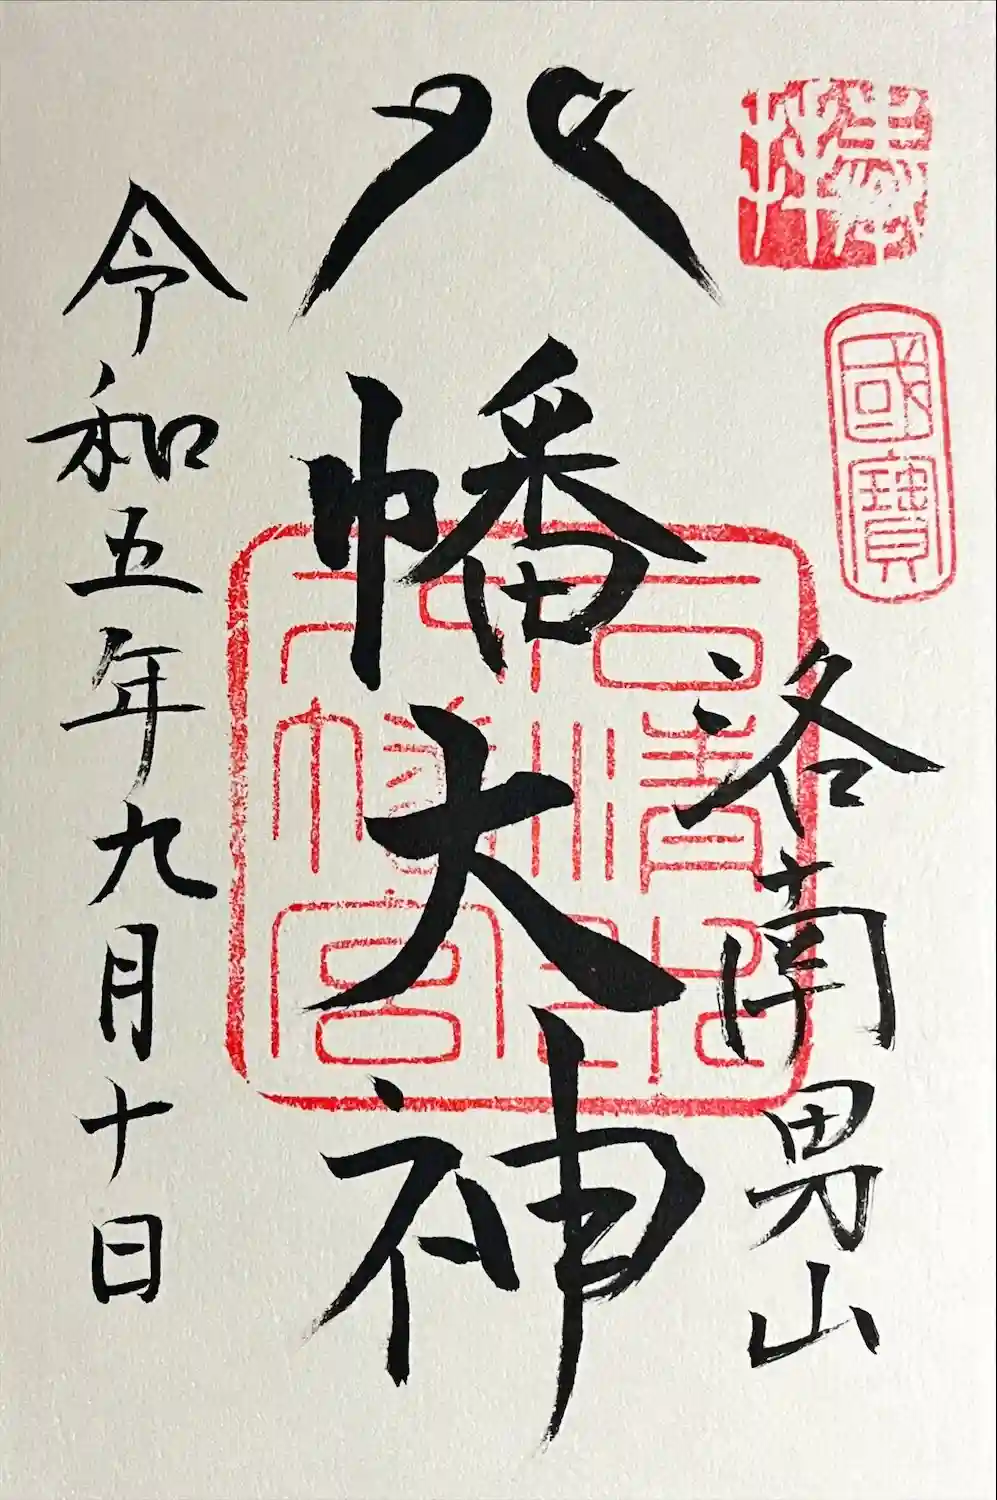 奉拝
國寶
洛南男山
八幡大神
石清水
八幡宮
令和五年九月十日